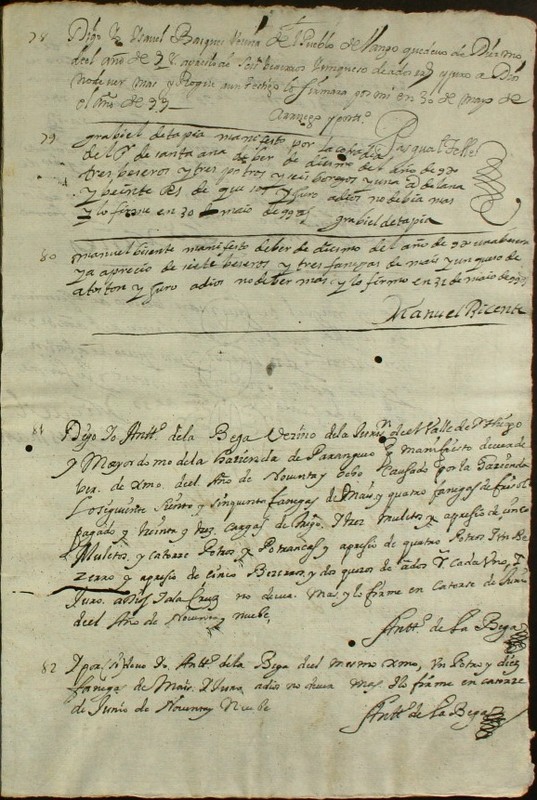 78 Digo Yo Ysauel Basques Vecina del Pueblo de Yango que deuo de Diezmo
del año de 98 apresio de siete beserros
no deuer mas y Rogue a un testigo lo firmara por mi en 30 de mayo de
el año de 99
Arruego y por tto
Pasqual Telles
79 grabiel de tapia manifesto por la cofradia
del Po de santa ana deber de diesmo del año de 98
tres beseros y tres potros y seis borregos y una @ de lana
y beinte ps de quesos y juro a dios no debia mas
y lo firme en 30 de maio de 99
grabiel de tapia
80 manuel bisente manifesto deber de diesmo del año de 98 una besera
y a aprecio de siete beseros y tres fanegas de mais y un queso de
a toston y juro a dios no deber mas y lo firmo en 31 de maio de 99
Manuel Bicente
81 Digo Yo Antto de la Bega Vezino de la Jurisn del Valle de S.thiago
y Mayordomo de la hazienda de Parangueo q manifiesto deuer de
de xmo. del Año de Nouenta y ocho Causado por la hazienda
Lo siguiente siento y sinquenta fanegas de Mais, y quatro fanegas de frisol
pagado y treinta y tres cargas de trigo. Y tres muletos a apresio de cinco
Muletos, y catorse Potros y Potrancas y apresio de quatro Potros Y un Be
zerro y apresio de cinco Bezerros, y dos quesos de a dos rs cada uno, y
Juro. a Dios Y a la Cruz no deuer. mas y lo firme en Catorse de Junio
del Año de Nouenta y nuebe,
Antto de La Bega
82 Y por si deuo Yo. Antto de la Bega del mesmo xmo, Un Potro y diez
fanegas de Mais. Y Juro. a dios no deuer mas Y lo firme en catorse
de Junio de Nouenta y Nuebe
Antto de La Bega